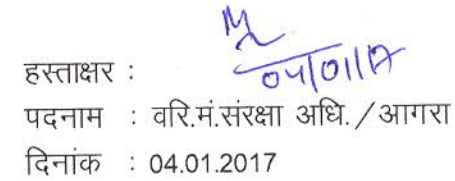 हस्ताक्षर : 04/01/17
पदनाम : वरि.मं.संरक्षा अधि./आगरा
दिनांक : 04.01.2017